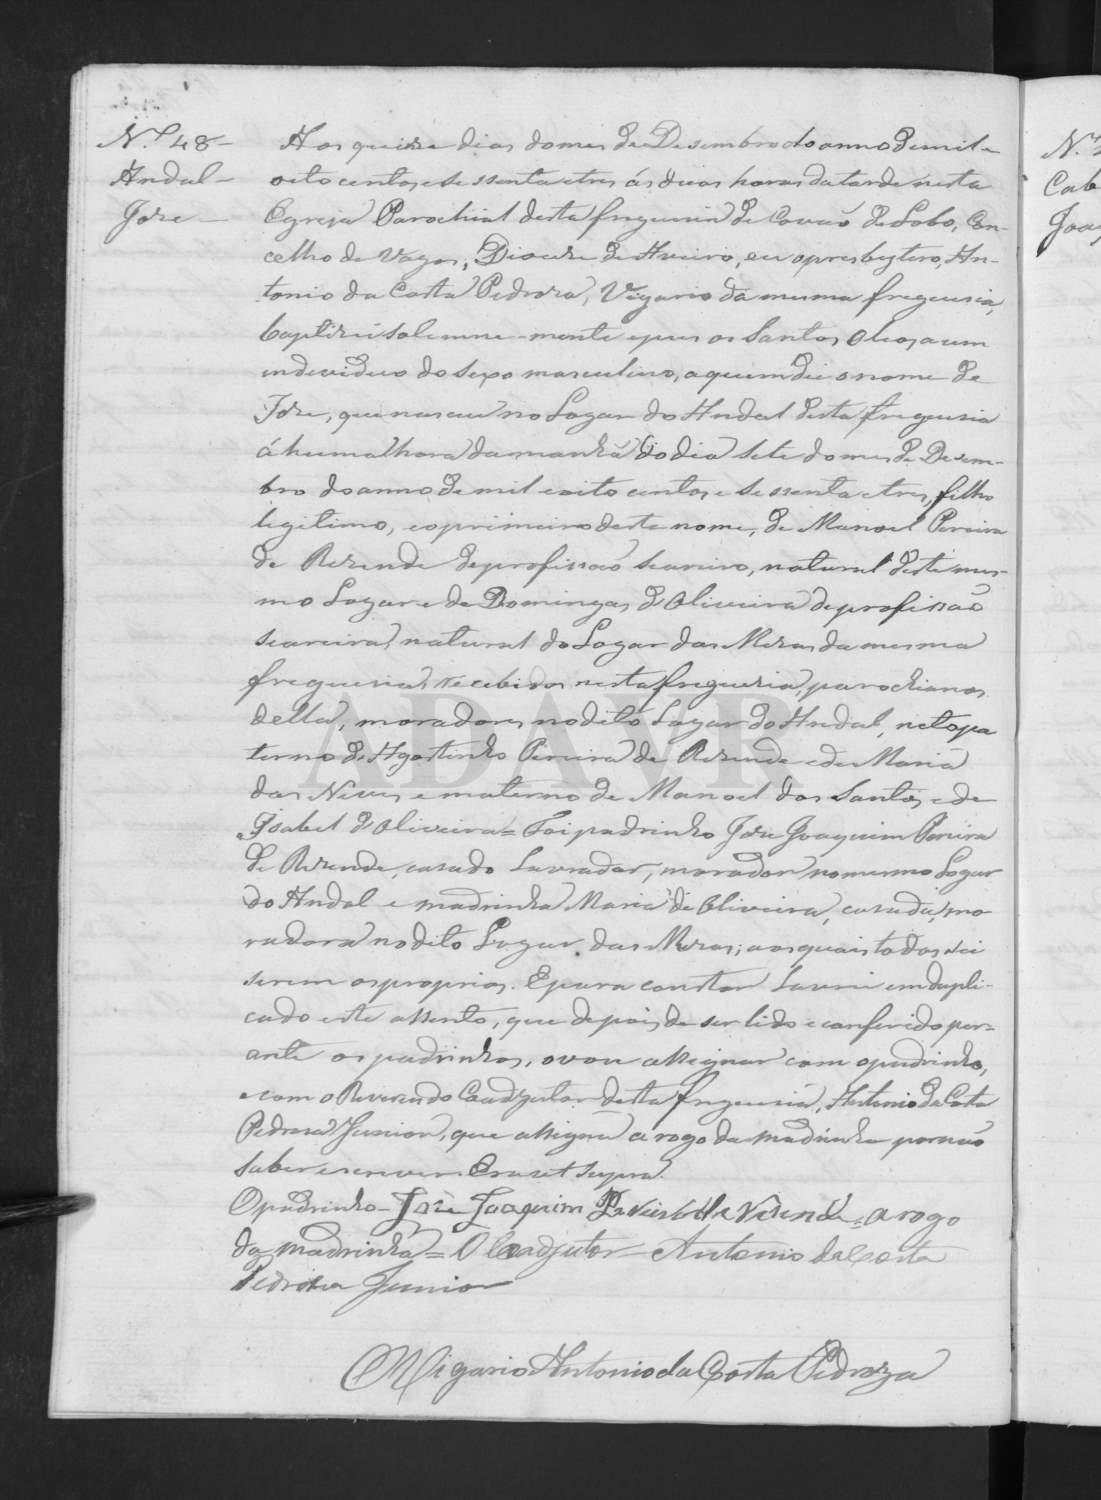 N.º 48-
Andal-
Joze-
Aos quinze dias do mes de Desembro do anno de mil e
oito centos e sessenta e tres ás duas horas da tarde nesta
Egreja Parochial desta freguesia de Covão de Lobo, Con-
celho de Vagos, Diocese de Aveiro, eu o presbytero, An-
tonio da Costa Pedroza, Vigario da mesma freguesia,
baptizei solemne-mente e pus os Santos Oleos a um
individuo do sexo masculino, a quem dei o nome de
Joze, que nasceu no Logar do Andal desta freguesia
á huma hora da manhã do dia sete do mes de Desem-
bro do anno de mil e oito centos e sessenta e tres, filho
legitimo, e o primeiro deste nome, de Manoel Pereira
de Rezende de profissão seareiro, natural deste mes-
mo Logar e de Domingas d'Oliveira de profissão
seareira, natural do Logar das Mezas da mesma
freguesia, recebidos nesta freguezia, parochianos
della, moradores no dito Logar do Andal, neto pa
terno de Agostinho Pereira de Rezende e de Maria
das Neves e materno de Manoel dos Santos e de
Isabel d'Oliveira = Foi padrinho Joze Joaquim Pereira
de Rezende, casado Lavrador, morador no mesmo Logar
do Andal e madrinha Maria de Oliveira, casada, mo
radora no dito Logar das Mezas; aos quais todos sei
serem os proprios. E para constar Lavrei em dupli-
cado este assento, que depois de ser lido e conferido per-
ante os padrinhos, o vou assignar com o padrinho,
e com o Reverendo Coadjutor desta freguesia, Antonio da Costa
Pedroza Junior, que assigna a rogo da madrinha por não
saber escrever. Era ut supra.
O padrinho - Joze Joaquim Pereira de Rezende = a rogo
da madrinha = O Coadjutor - Antonio da Costa
Pedroza Junior
O Vigario Antonio da Costa Pedroza
N.º
Cab
Joaq
ADAVR